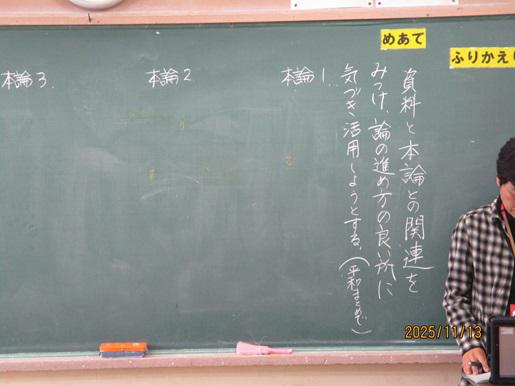 ふりかえり
めあて
資料と本論との関連を
みつけ、論の進め方の良い所に
気づき活用しようとする。(平和まとめで)
本論1.
本論2
本論3.
2025/11/13